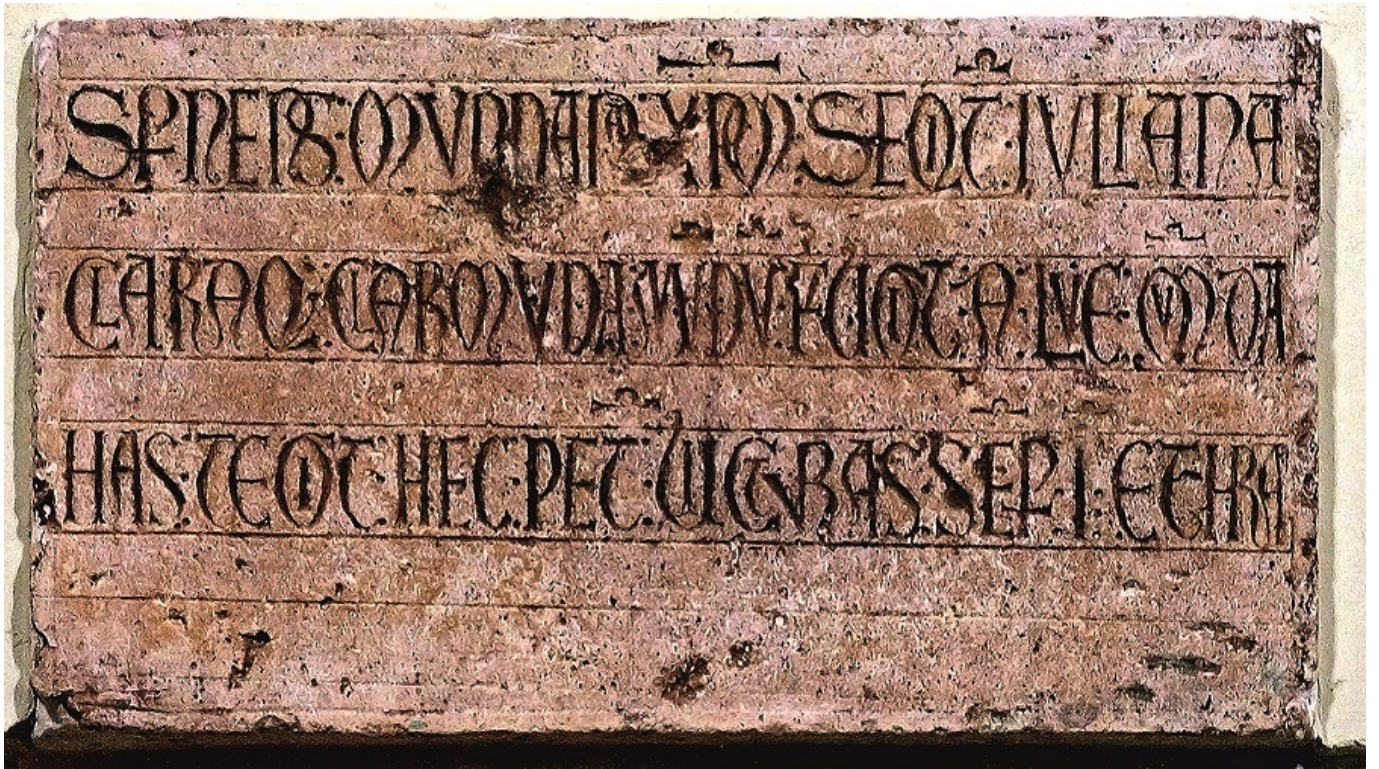 SPNENS : MVNDANA XPM : SEQIT : IVLIANA
CLARAQ : CLAR MVDA MVDV : FUGIT : A : LVE : MVDA
HAS : TEGIT HEC : PET : VICTVRAS : SEP : I : ETHRA